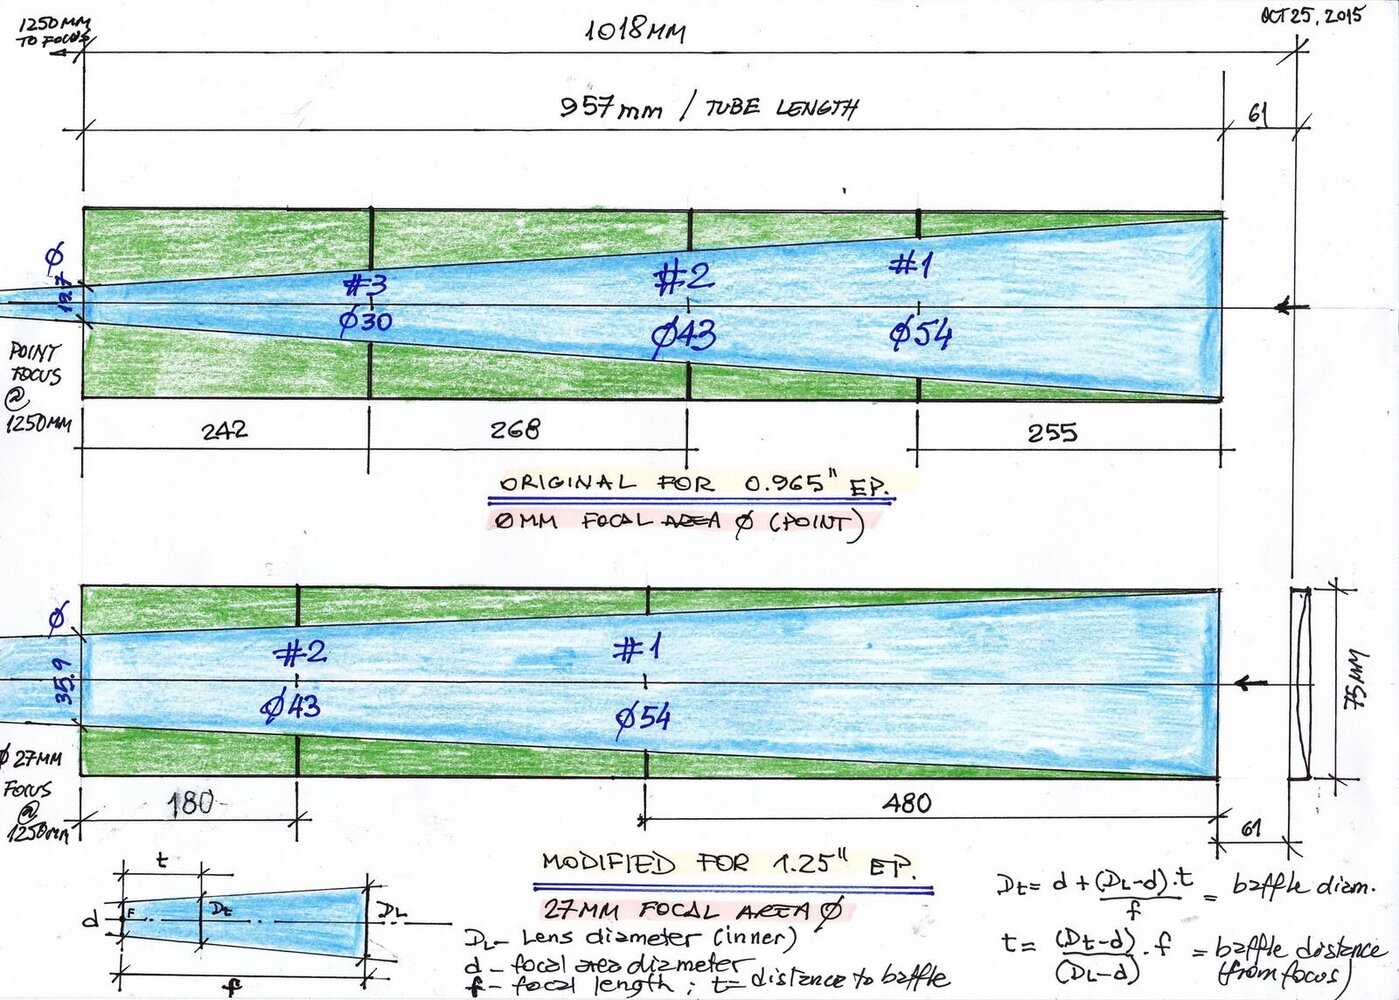 1250MM
TO FOCUS
1018MM
OCT 25, 2015
957mm / TUBE LENGTH
61
Ø
#3
Ø30
#2
Ø43
#1
Ø54
POINT
FOCUS
@
1250MM
242
268
255
ORIGINAL FOR 0.965" EP.
0MM FOCAL AREA Ø (POINT)
Ø
35.9
#2
Ø43
#1
Ø54
75MM
Ø 27MM
FOCUS
@
1250MM
180
480
61
MODIFIED FOR 1.25" EP.
27MM FOCAL AREA Ø
t
d
F
Dt
DL
f
DL - Lens diameter (inner)
d - focal area diameter
f - focal length ; t = distance to baffle
Dt = d + (DL-d).t / f = baffle diam.
t = (Dt-d) / (DL-d) . f = baffle distance
(from focus)